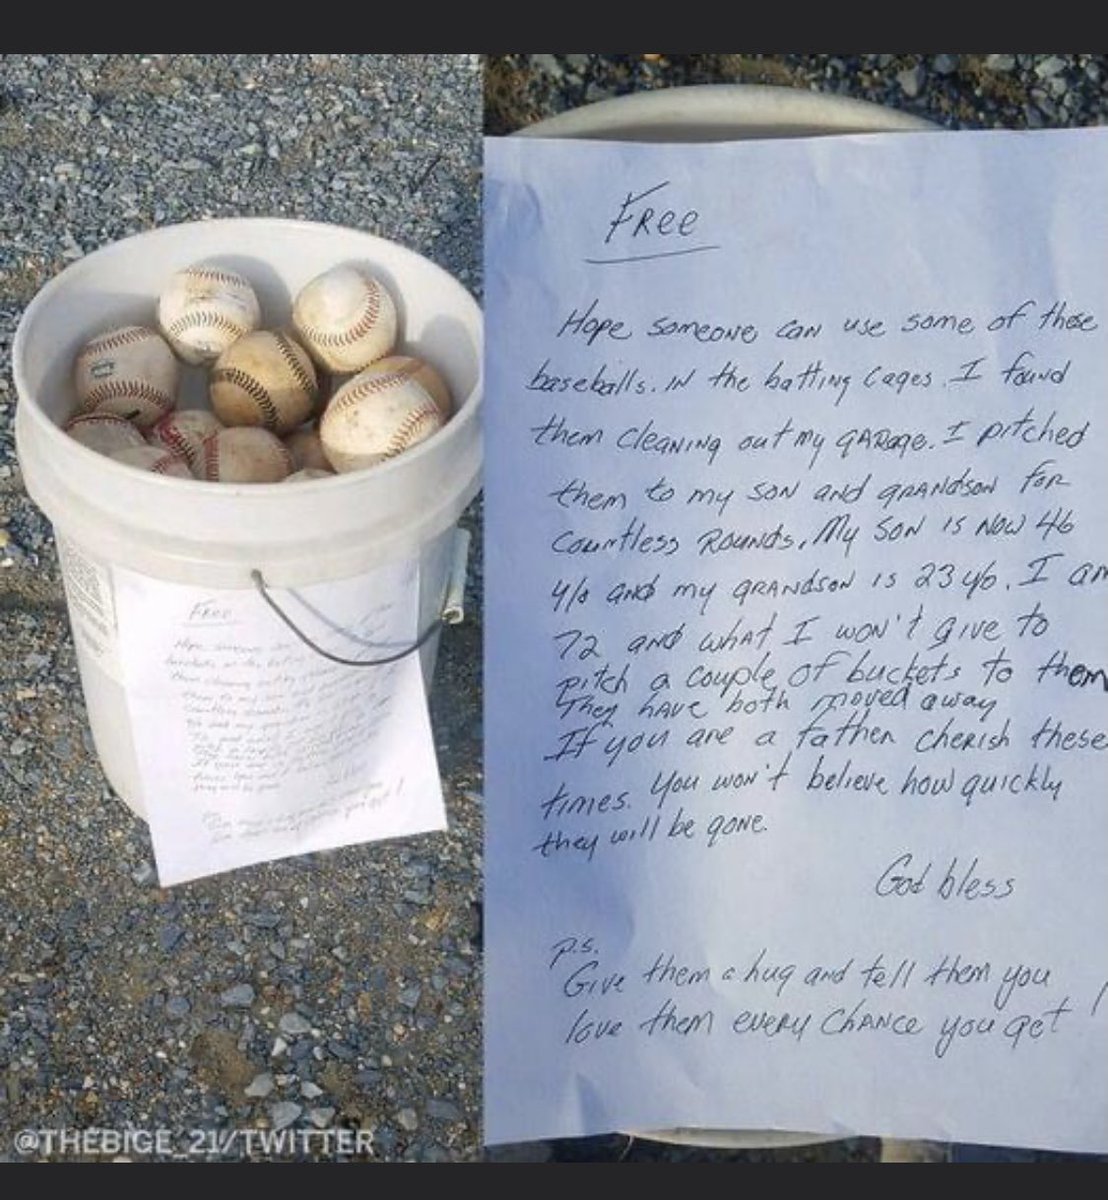 Free
Hope someone can use some of these
baseballs. IN the batting cages. I found
them cleaning out my garage. I pitched
them to my son and grandson for
countless rounds. My son is now 46
y/o and my grandson is 23 y/o. I am
72 and what I won't give to
pitch a couple of buckets to them
They have both moved away
If you are a father cherish these
times. You won't believe how quickly
they will be gone.
God bless
p.s.
Give them a hug and tell them you
love them every chance you get !
@THEBIGE_21/TWITTER